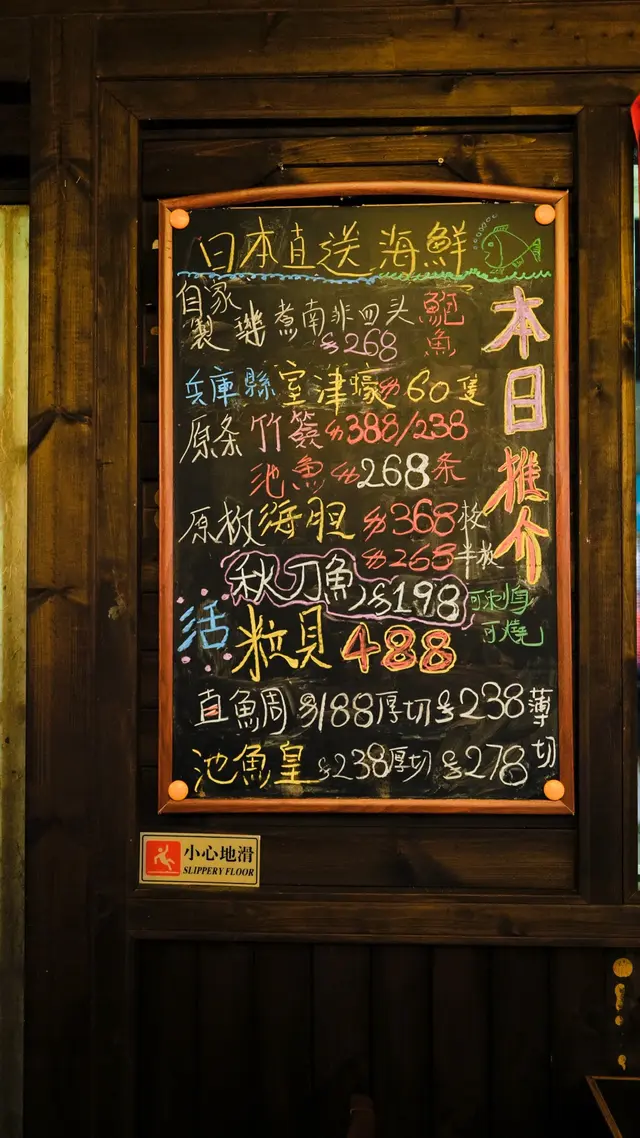 日本直送海鮮
本日推介
自家製 煮南非四头鮑魚
$268
兵庫縣室津蠔$60隻
原条竹簽$388/238
池魚$268条
原板海胆$368板
$268半板
秋刀魚$198可刺身
可燒
活粒貝488
直魚周$188厚切$238薄切
池魚皇$238厚切$278
小心地滑
SLIPPERY FLOOR